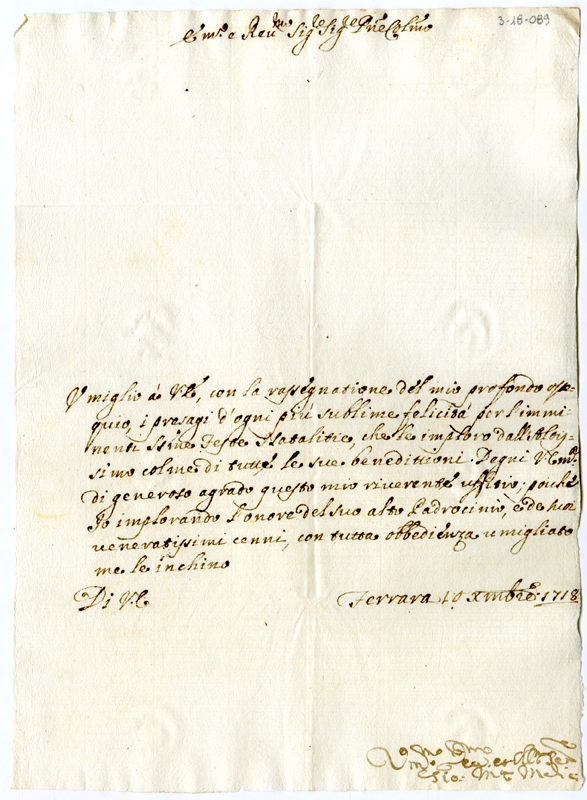 3-18-089
Em.o e Rev.mo Sig.re Sig.re P̃ne Col.mo
Umiglio à V.E., con la rassegnatione del mio profondo osse-
quio, i presagi d'ogni più sublime felicità per l'immi-
nenti SS.me Feste Natalitie, che le imploro dall'Altis-
simo colme di tutte le sue benedittioni. Degni V. Em.za
di generoso agrado questo mio riverente uffitio; poiché
Io implorando l'onore del suo alto Padrocinio, e de suoi
veneratissimi cenni, con tutta obbedienza umigliato
me le inchino
Di V.E.
Ferrara 10 Xmbre: 1718